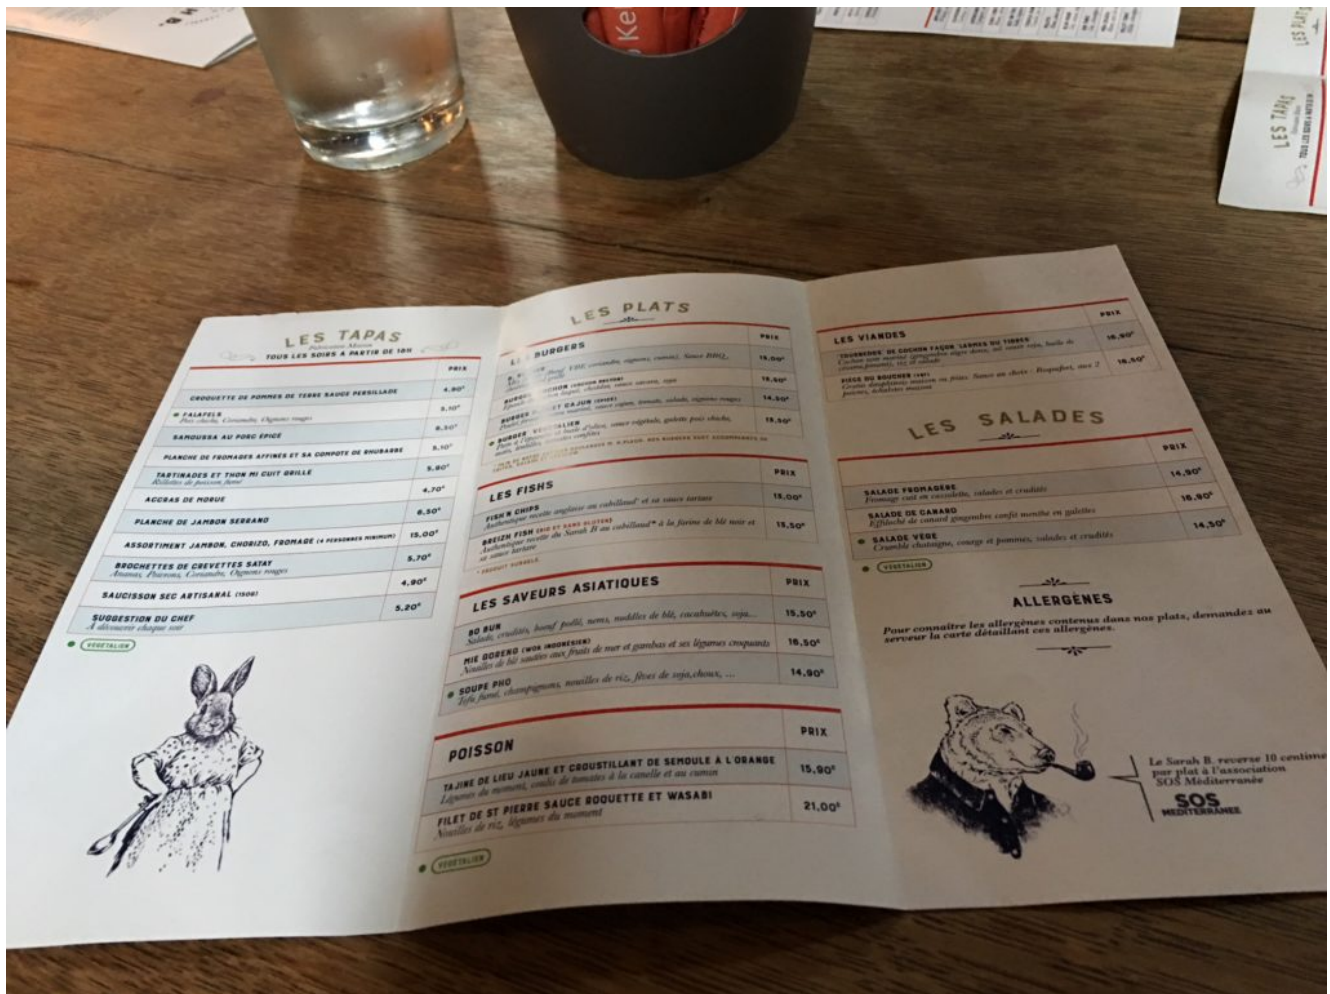 LES TAPAS
Fabrication Maison
TOUS LES SOIRS A PARTIR DE 18H
PRIX
CROQUETTE DE POMMES DE TERRE SAUCE PERSILLADE 4,90€
FALAFELS 5,10€
Pois chiche, Coriandre, Oignons rouges
SAMOUSSA AU PORC ÉPICÉ 6,50€
PLANCHE DE FROMAGES AFFINÉS ET SA COMPOTE DE RHUBARBE 5,10€
TARTINADES ET THON MI CUIT GRILLÉ 5,80€
Rillettes de poisson fumé
ACCRAS DE MORUE 4,70€
PLANCHE DE JAMBON SERRANO 6,50€
ASSORTIMENT JAMBON, CHORIZO, FROMAGE (4 PERSONNES MINIMUM) 15,00€
BROCHETTES DE CREVETTES SATAY 5,70€
Ananas, Poivrons, Coriandre, Oignons rouges
SAUCISSON SEC ARTISANAL (150G) 4,90€
SUGGESTION DU CHEF 5,20€
À découvrir chaque soir
VÉGÉTALIEN
LES PLATS
LES BURGERS PRIX
VBF, coriandre, oignons, cumin, Sauce BBQ, 15,00€
BURGER
BURGER CAJUN (ÉPICÉ) 14,50€
sauce cajun, tomate, salade, oignons rouges
BURGER VÉGÉTALIEN 15,50€
sauce végétale, galette pois chiche,
LES FISHS PRIX
FISH'N CHIPS 15,00€
Authentique recette anglaise au cabillaud* et sa sauce tartare
BREIZH FISH (BIO ET SANS GLUTEN) 15,50€
Authentique recette du Sarah B au cabillaud* à la farine de blé noir et
sa sauce tartare
* PRODUIT DURABLE
LES SAVEURS ASIATIQUES PRIX
BO BUN 15,50€
Salade, crudités, boeuf poêlé, nems, nuddles de blé, cacahuètes, soja...
MIE GORENG (WOK INDONÉSIEN) 16,50€
Nouilles de blé sautées aux fruits de mer et gambas et ses légumes croquants
SOUPE PHO 14,90€
Tofu fumé, champignons, nouilles de riz, fèves de soja,choux, ...
POISSON PRIX
TAJINE DE LIEU JAUNE ET CROUSTILLANT DE SEMOULE À L ORANGE 15,90€
Légumes du moment, coulis de tomates à la canelle et au cumin
FILET DE ST PIERRE SAUCE ROQUETTE ET WASABI 21,00€
Nouilles de riz, légumes du moment
VÉGÉTALIEN
LES VIANDES PRIX
DE COCHON FAÇON 16,90€
Cochon noir mariné
PIÈCE DU BOUCHER 16,50€
Gratin dauphinois maison ou frites. Sauce au choix : Roquefort, aux 2
poivres, échalotes maison
LES SALADES
PRIX
SALADE FROMAGÈRE 14,90€
Fromage cuit en cassolette, salades et crudités
SALADE DE CANARD 16,90€
Effiloché de canard gingembre confit menthe en galettes
SALADE VERE 14,50€
Crumble chataigne, courge et pommes, salades et crudités
VÉGÉTALIEN
ALLERGÈNES
Pour connaître les allergènes contenus dans nos plats, demandez au
serveur la carte détaillant ces allergènes.
Le Sarah B. reverse 10 centime
par plat à l'association
SOS Méditerranée
SOS
MEDITERRANEE
LES PLATS
LES TAPAS
TOUS LES SOIRS A PARTIR DE
Ke